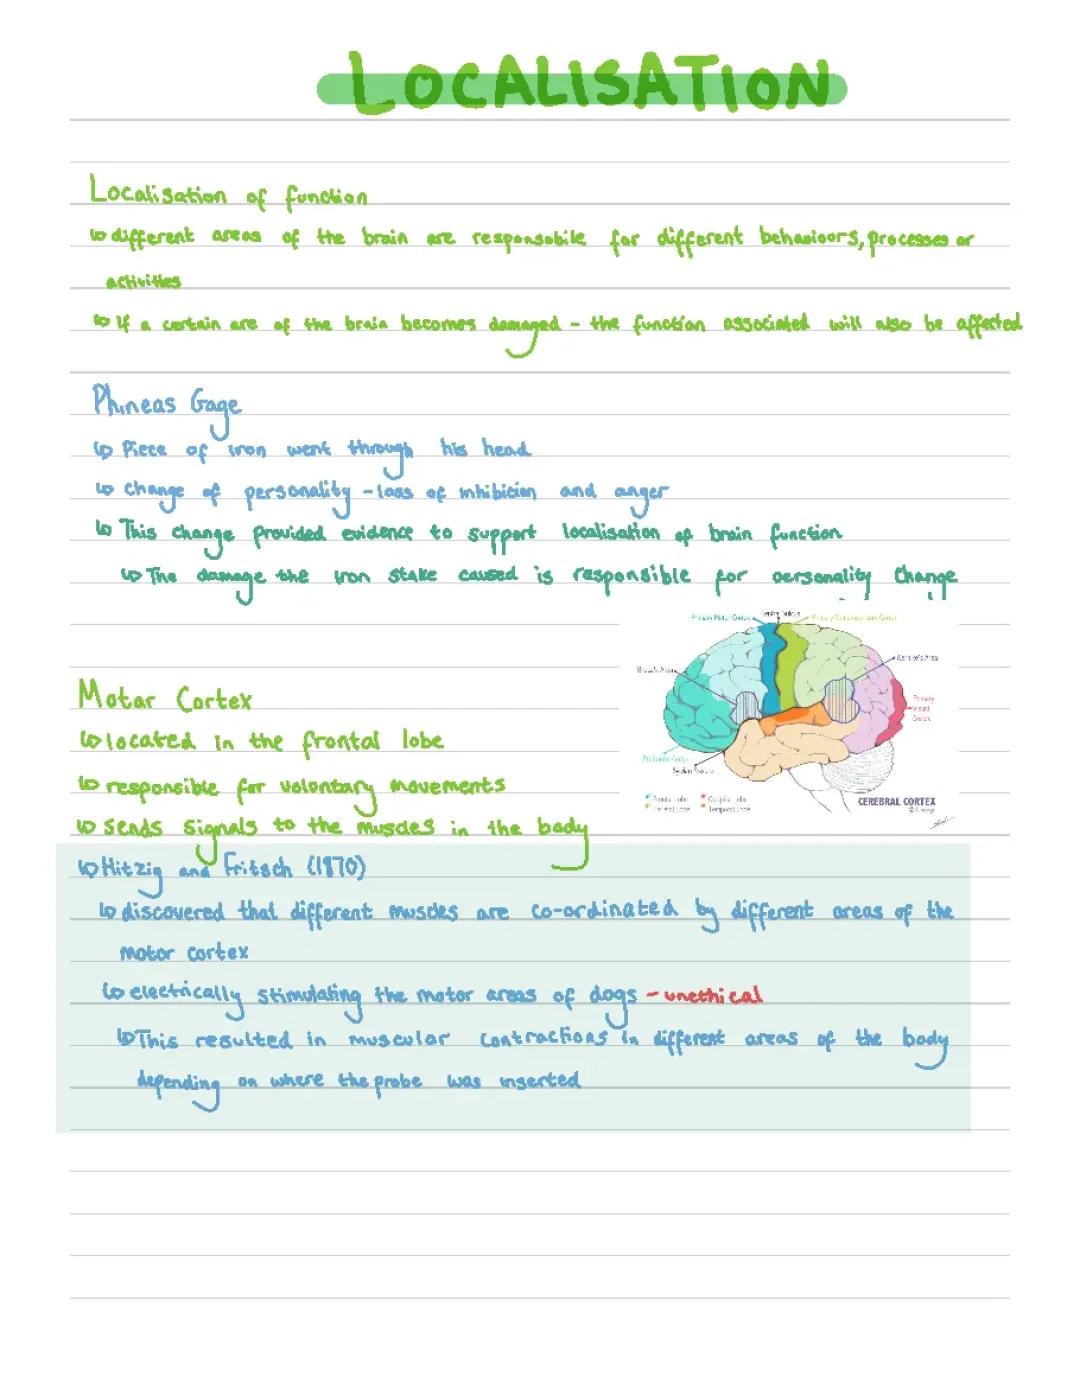 LOCALISATION
Localisation of function
↳ different areas of the brain are responsobile for different behaviours, processes or
activities
↳ If a certain are of the brain becomes damaged - the function associated will also be affected
Phineas Gage
↳ Piece of iron went through his head
↳ change of personality - loss of inhibition and anger
↳ This change provided evidence to support localisation of brain function
↳ The damage the iron stake caused is responsible for personality change
Primary Motor Cortex
Central Sulcus
Primary Somatosensory Cortex
Broca's Area
Wernicke's Area
Primary
Visual
Cortex
Prefrontal Cortex
Sylvian Fissure
Frontal Lobe
Occipital Lobe
Parietal Lobe
Temporal Lobe
CEREBRAL CORTEX
Motor Cortex
↳ located in the frontal lobe
↳ responsible for voluntary movements
↳ sends signals to the muscles in the body
↳ Hitzig and Fritsch (1870)
↳ discovered that different muscles are co-ordinated by different areas of the
motor cortex
↳ electrically stimulating the motor areas of dogs - unethical
↳ This resulted in muscular contractions in different areas of the body
depending on where the probe was inserted